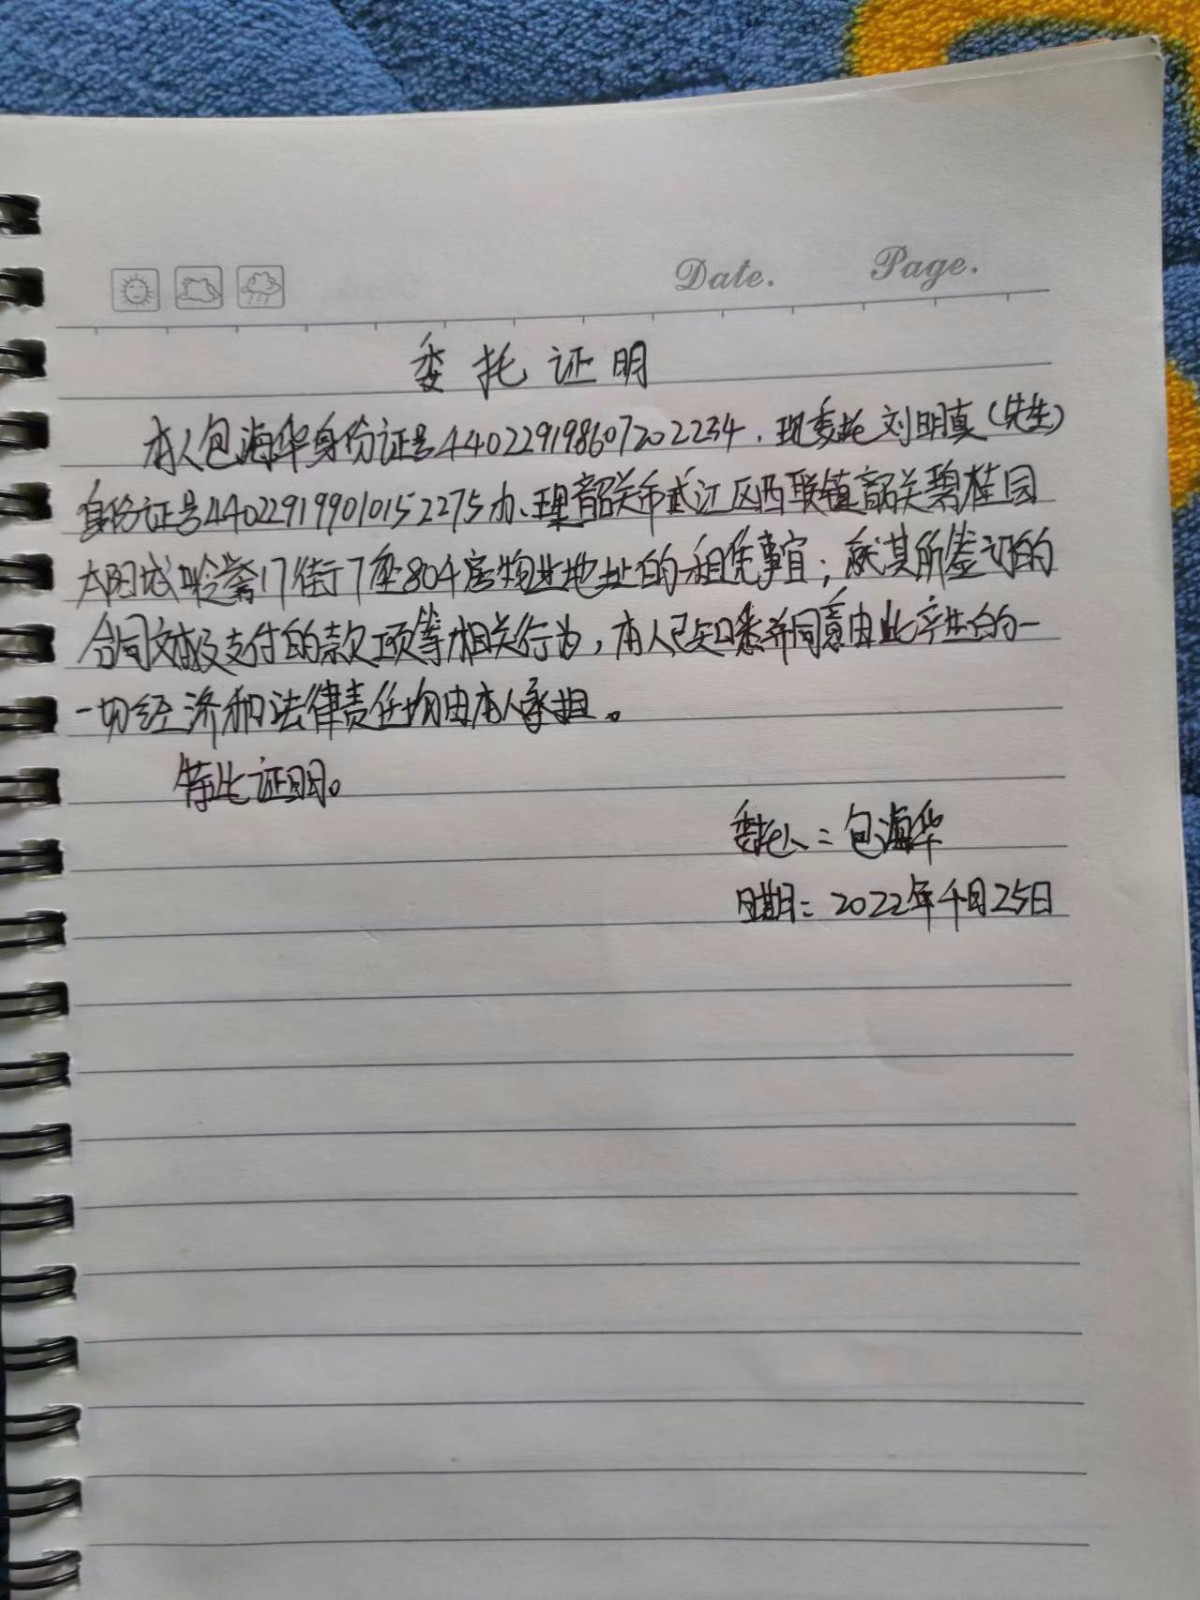 Date. Page.
委托证明
本人包海华身份证号440229198607202234，现委托刘明真（先生）
身份证号440229199010152275办理韶关市武江区西联镇韶关碧桂园
太阳城聆莺17街7座804房物业地址的租凭事宜；就其所签订的
合同文成及支付的款项等相关行为，本人已知悉并同意由此产生的一
一切经济和法律责任均由本人承担。
特此证明。
委托人：包海华
日期：2022年4月25日